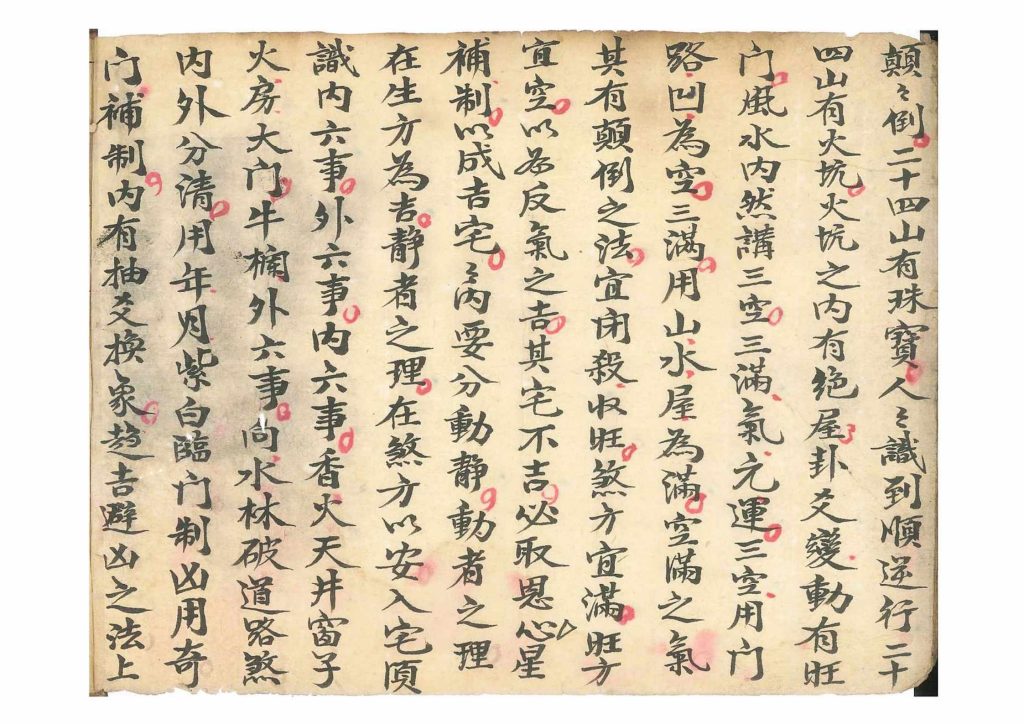 顛〻倒二十四山有珠寶人〻識到順逆行二十
四山有火坑火坑之内有绝屋卦爻變動有旺
门風水内然講三空三滿氣元運三空用门
路凹為空三滿用山水屋為滿空滿之氣
其有顛倒之法宜闭殺收旺煞方宜滿旺方
宜空以為反氣之吉其宅不吉必取恩星
補制以成吉宅〻内要分動静動者之理
在生方為吉静者之理在煞方以安入宅須
識内六事外六事内六事香火天井窗子
火房大门牛欄外六事向水林破道路煞
内外分清用年月紫白臨门制凶用奇
门補制内有抽爻換象趋吉避凶之法上